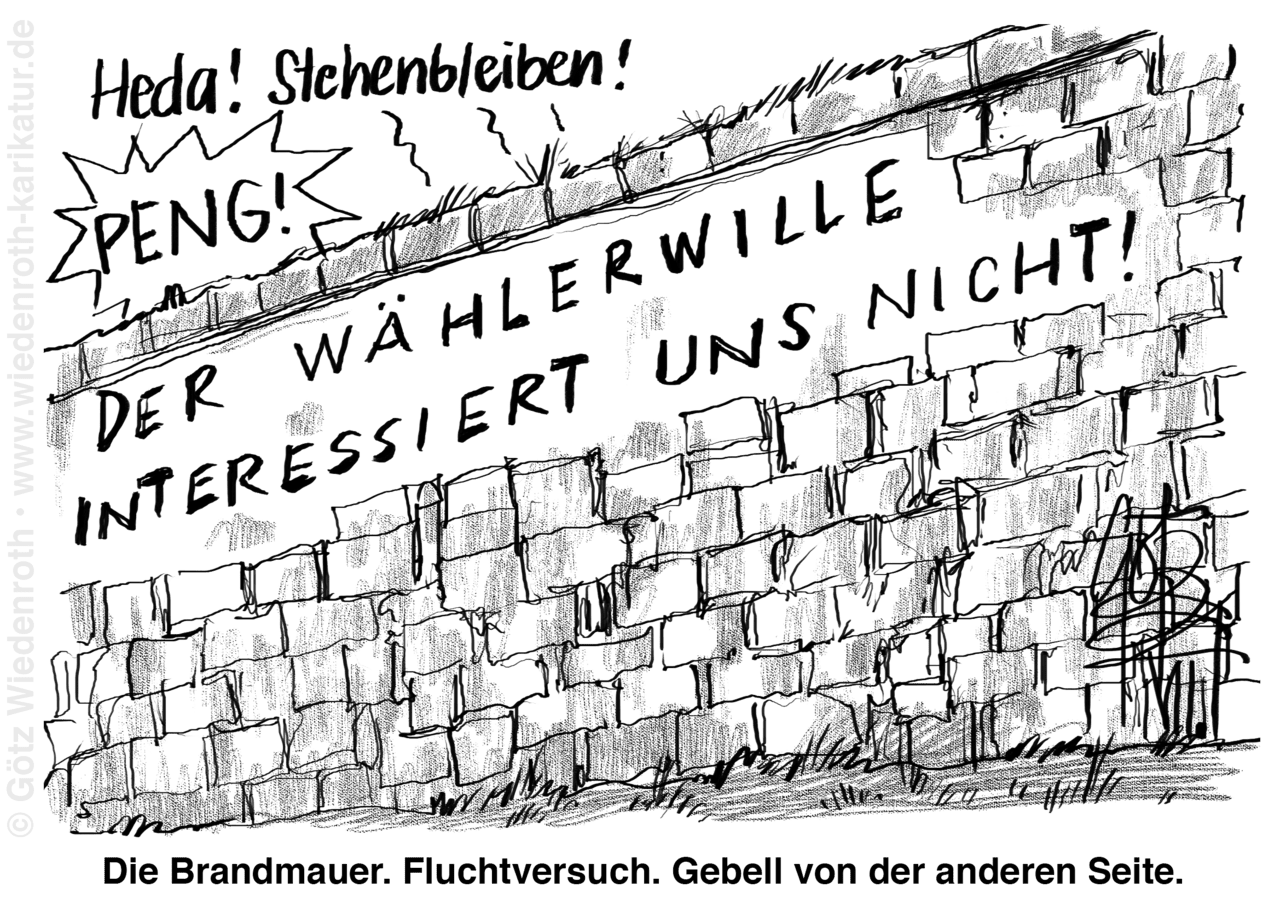 Heda! Stehenbleiben!
PENG!
DER WÄHLERWILLE
INTERESSIERT UNS NICHT!
Die Brandmauer. Fluchtversuch. Gebell von der anderen Seite.
© Götz Wiedenroth · www.wiedenroth-karikatur.de